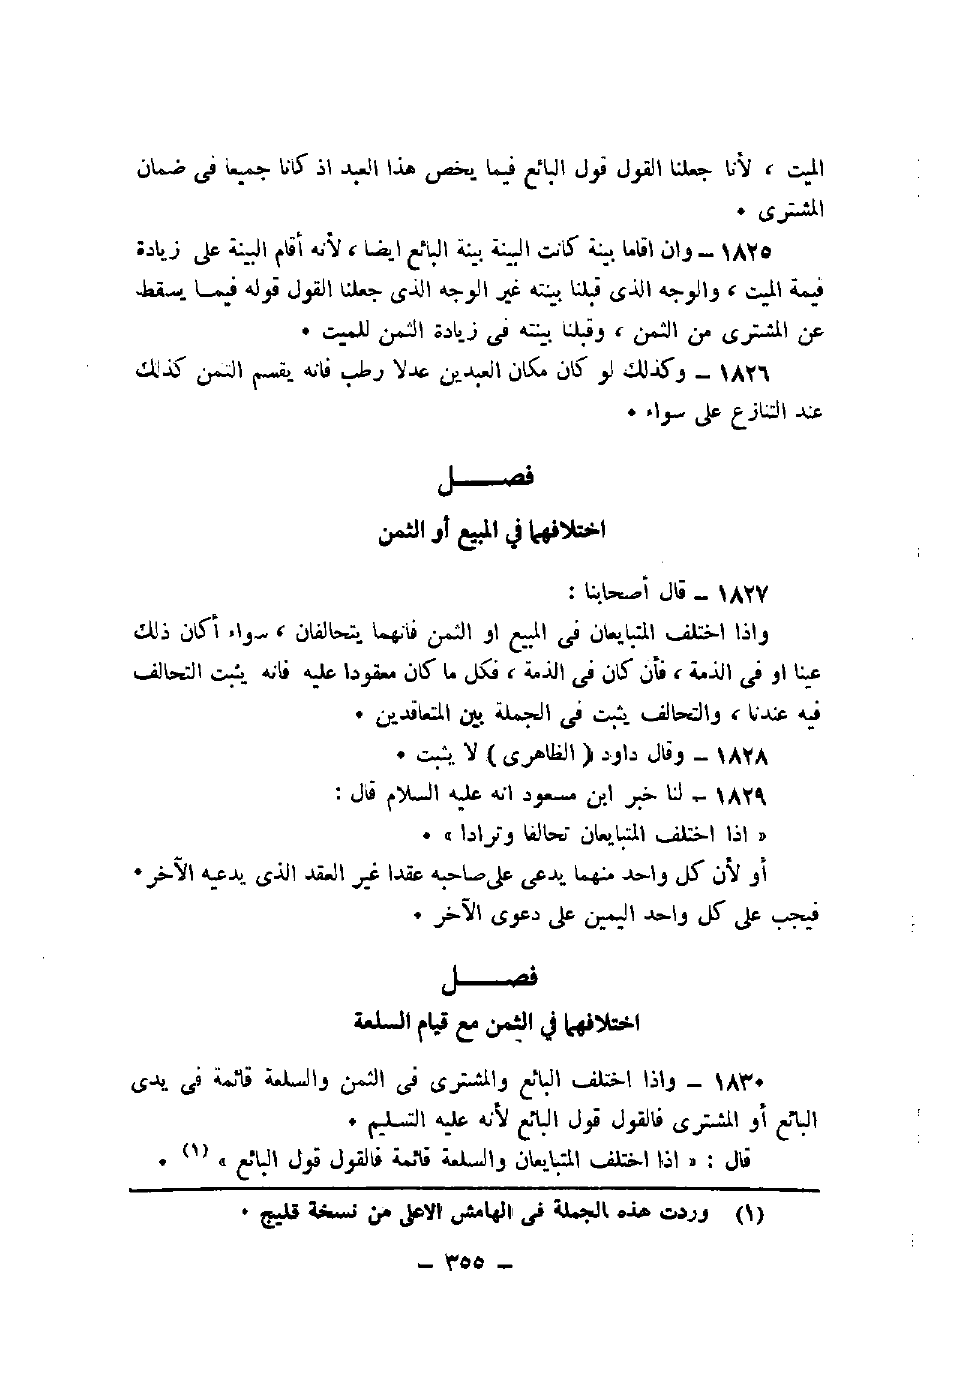 الميت ، لأنا جعلنا القول قول البائع فيما يخص هذا العبد اذ كانا جميعا فى ضمان
المشترى .
١٨٢٥ – وان اقاما بينة كانت البينة بينة البائع ايضا ، لأنه أقام البينة على زيادة
قيمة الميت ، والوجه الذى قبلنا بينته غير الوجه الذى جعلنا القول قوله فيمــا يسقط
عن المشترى من الثمن ، وقبلنا بينته فى زيادة الثمن للميت .
١٨٢٦ – وكذلك لو كان مكان العبدين عدلا رطب فانه يقسم الثمن كذلك
عند التنازع على سواء .
فصــــــل
اختلافهما في المبيع أو الثمن
١٨٢٧ – قال أصحابنا :
واذا اختلف المتبايعان فى المبيع او الثمن فانهما يتحالفان ، سواء أكان ذلك
عينا او فى الذمة ، فأن كان فى الذمة ، فكل ما كان معقودا عليه فانه يثبت التحالف
فيه عندنا ، والتحالف يثبت فى الجملة بين المتعاقدين .
١٨٢٨ – وقال داود ( الظاهرى ) لا يثبت .
١٨٢٩ – لنا خبر ابن مسعود انه عليه السلام قال :
« اذا اختلف المتبايعان تحالفا وترادا » .
أو لأن كل واحد منهما يدعى على صاحبه عقدا غير العقد الذى يدعيه الآخر .
فيجب على كل واحد اليمين على دعوى الآخر .
فصــــــل
اختلافهما في الثمن مع قيام السلعة
١٨٣٠ – واذا اختلف البائع والمشترى فى الثمن والسلعة قائمة فى يدى
البائع أو المشترى فالقول قول البائع لأنه عليه التسليم .
قال : « اذا اختلف المتبايعان والسلعة قائمة فالقول قول البائع » (١) .
(١) وردت هذه الجملة فى الهامش الاعلى من نسخة قليج .
– ٣٥٥ –